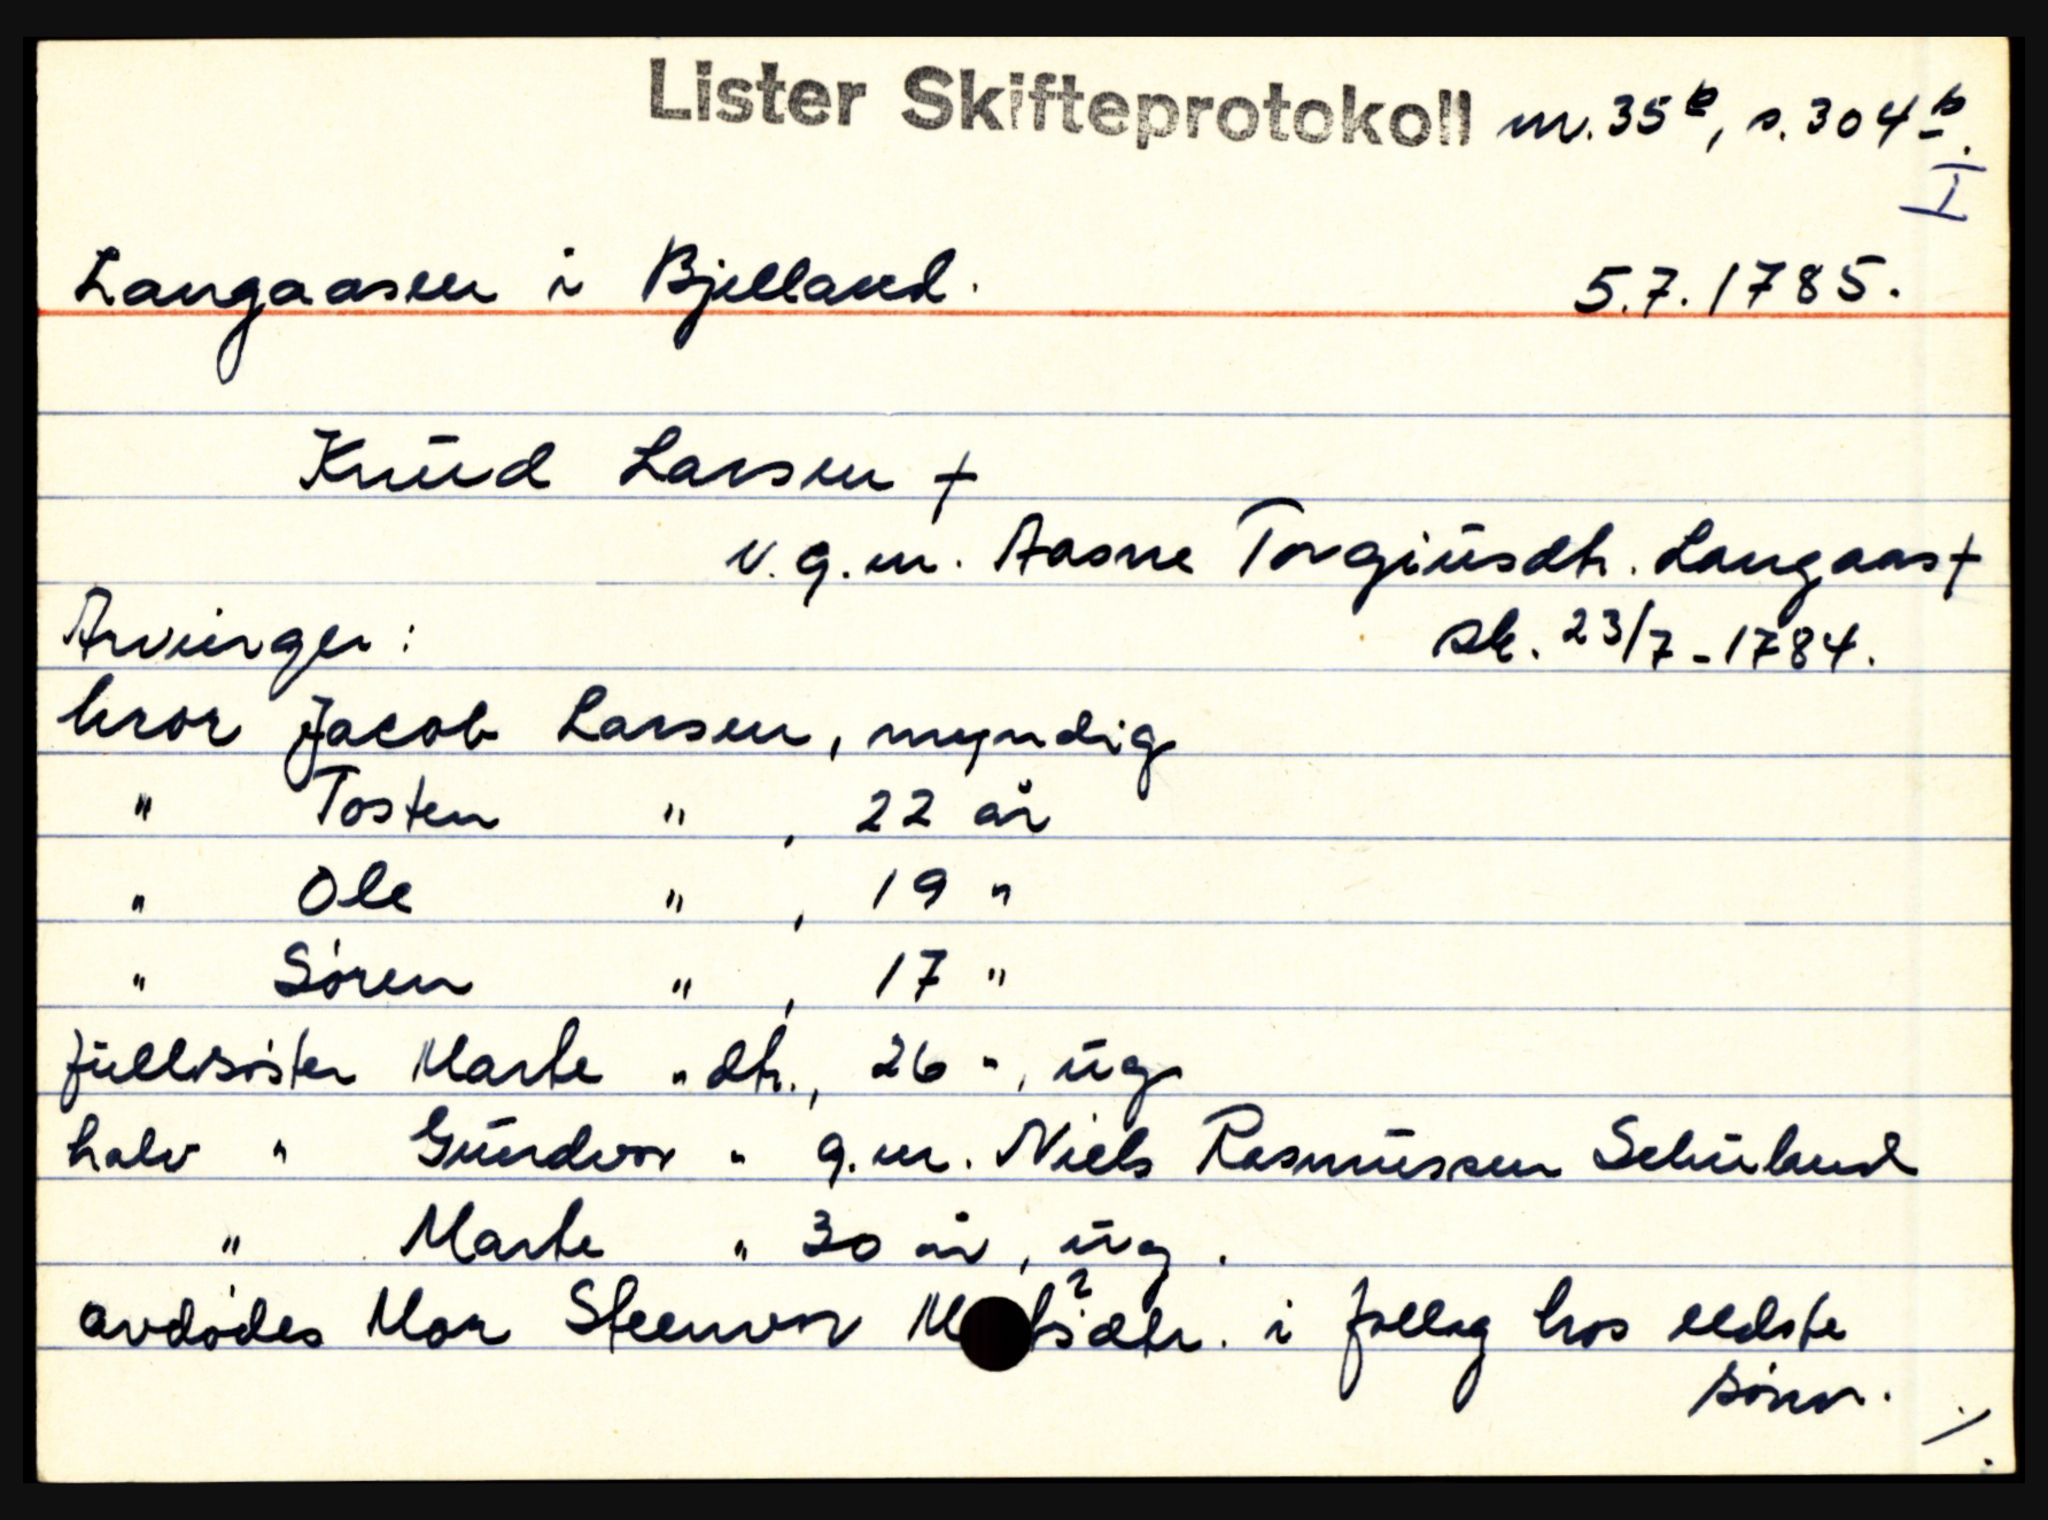 Lister Skifteprotokoll nr. 35b, s. 304b.
I
Langaasen i Bjelland. 5.7.1785.
Knud Larsen †
v. g.m. Aasne Torgiusdtr. Langaas †
Arvinger: sk. 23/7-1784.
bror Jacob Larsen, myndig
" Tosten " , 22 år
" Ole " , 19 "
" Søren " , 17 "
fullsøster Marte " dtr., 26 ", ug
halv " Gundvor " g.m. Niels Rasmussen
" Marte " 30 år, ug.
avdødes Mor Steenvor i follog hos eldste
sønn.